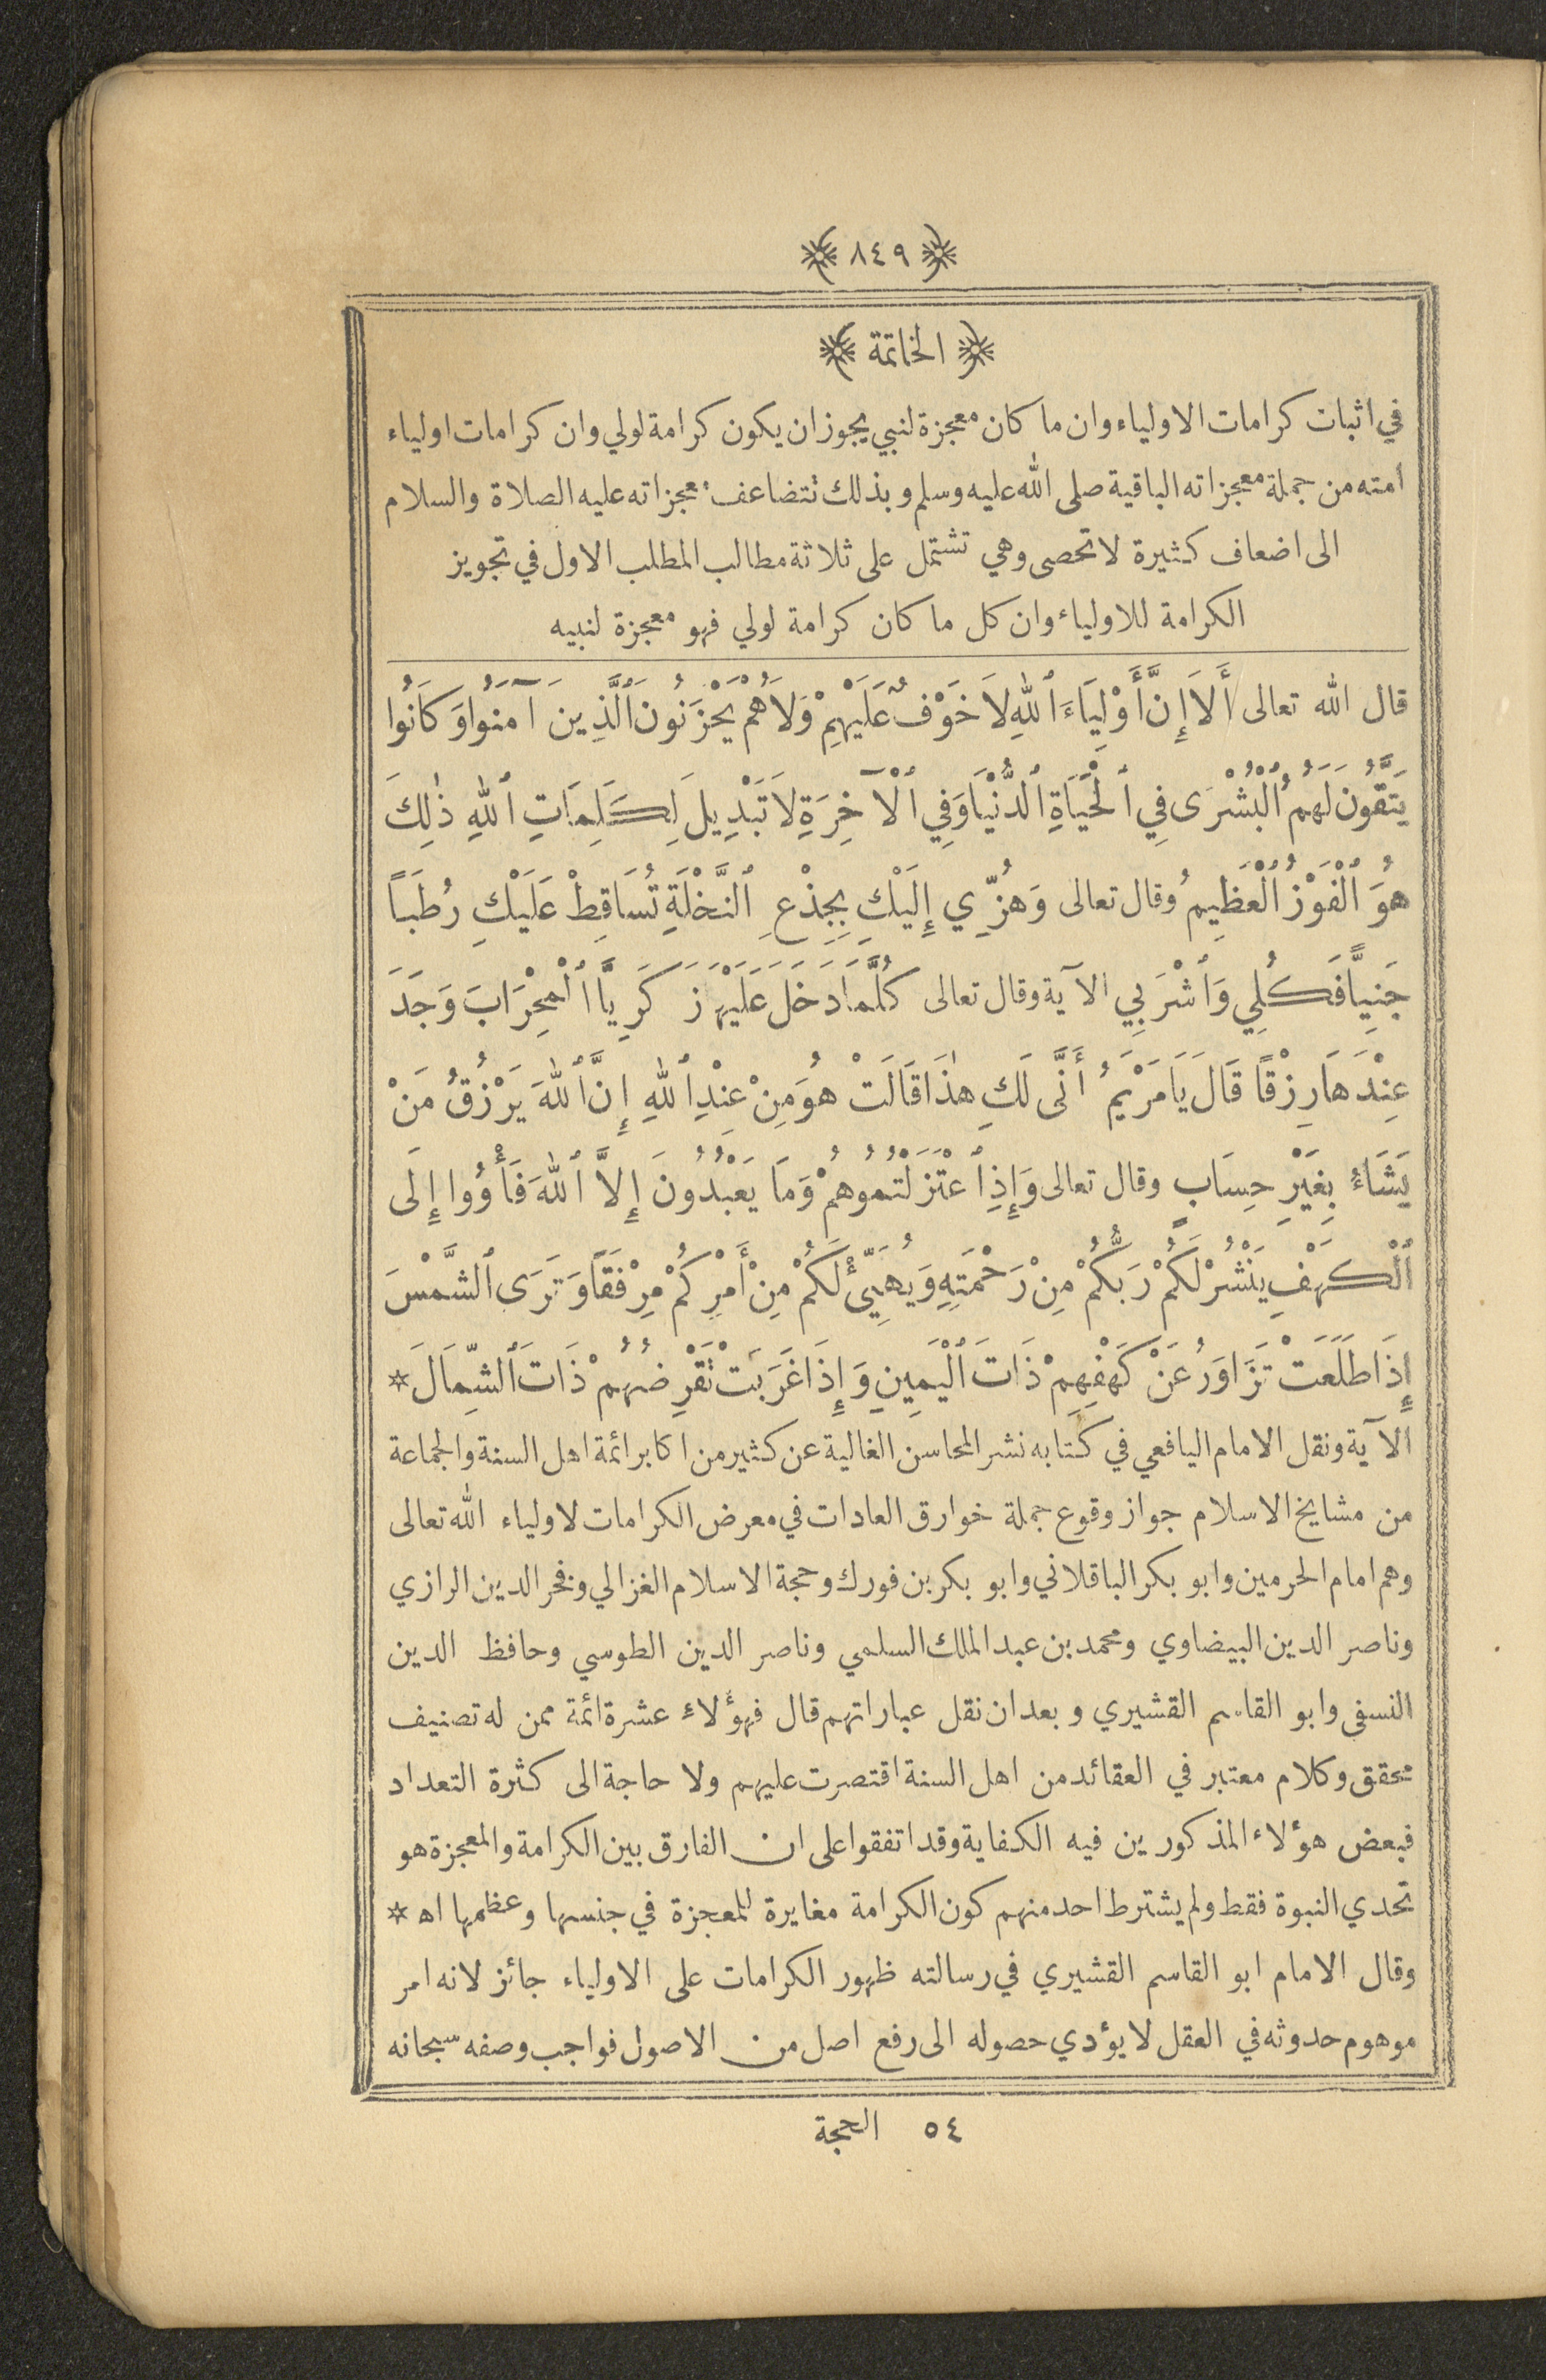 ﴿ ٨٤٩ ﴾
﴿ الخاتمة ﴾
في اثبات كرامات الاولياء وان ما كان معجزة لنبي يجوز ان يكون كرامة لولي وان كرامات اولياء
امته من جملة معجزاته الباقية صلى الله عليه وسلم وبذلك تتضاعف معجزاته عليه الصلاة والسلام
الى اضعاف كثيرة لا تحصى وهي تشتمل على ثلاثة مطالب المطلب الاول في تجويز
الكرامة للاولياء وان كل ما كان كرامة لولي فهو معجزة لنبيه
قال الله تعالى أَلاَ إِنَّ أَوْلِيَاءَ ٱللهِ لاَ خَوْفٌ عَلَيْهِمْ وَلاَ هُمْ يَحْزَنُونَ ٱلَّذِينَ آمَنُوا وَكَانُوا
يَتَّقُونَ لَهُمُ ٱلْبُشْرَى فِي ٱلْحَيَاةِ ٱلدُّنْيَا وَفِي ٱلْآخِرَةِ لاَ تَبْدِيلَ لِكَلِمَاتِ ٱللهِ ذٰلِكَ
هُوَ ٱلْفَوْزُ ٱلْعَظِيمُ وقال تعالى وَهُزِّي إِلَيْكِ بِجِذْعِ ٱلنَّخْلَةِ تُسَاقِطْ عَلَيْكِ رُطَبًا
جَنِيًّا فَكُلِي وَٱشْرَبِي الآية وقال تعالى كُلَّمَا دَخَلَ عَلَيْهَا زَكَرِيَّا ٱلْمِحْرَابَ وَجَدَ
عِنْدَهَا رِزْقًا قَالَ يَا مَرْيَمُ أَنَّى لَكِ هٰذَا قَالَتْ هُوَ مِنْ عِنْدِ ٱللهِ إِنَّ ٱللهَ يَرْزُقُ مَنْ
يَشَاءُ بِغَيْرِ حِسَابٍ وقال تعالى وَإِذِ ٱعْتَزَلْتُمُوهُمْ وَمَا يَعْبُدُونَ إِلاَّ ٱللهَ فَأْوُوا إِلَى
ٱلْكَهْفِ يَنْشُرْ لَكُمْ رَبُّكُمْ مِنْ رَحْمَتِهِ وَيُهَيِّئْ لَكُمْ مِنْ أَمْرِكُمْ مِرْفَقًا وَتَرَى ٱلشَّمْسَ
إِذَا طَلَعَتْ تَزَاوَرُ عَنْ كَهْفِهِمْ ذَاتَ ٱلْيَمِينِ وَإِذَا غَرَبَتْ تَقْرِضُهُمْ ذَاتَ ٱلشِّمَالَ *
الآية ونقل الامام اليافعي في كتابه نشر المحاسن الغالية عن كثير من اكابر ائمة اهل السنة والجماعة
من مشايخ الاسلام جواز وقوع جملة خوارق العادات في معرض الكرامات لاولياء الله تعالى
وهم امام الحرمين وابو بكر الباقلاني وابو بكر بن فورك وحجة الاسلام الغزالي وفخر الدين الرازي
وناصر الدين البيضاوي ومحمد بن عبد الملك السلمي وناصر الدين الطوسي وحافظ الدين
النسفى وابو القاسم القشيري وبعد ان نقل عباراتهم قال فهؤلاء عشرة ائمة ممن له تصنيف
محقق وكلام معتبر في العقائد من اهل السنة اقتصرت عليهم ولا حاجة الى كثرة التعداد
فبعض هؤلاء المذكورين فيه الكفاية وقد اتفقوا على ان الفارق بين الكرامة والمعجزة هو
تحدي النبوة فقط ولم يشترط احد منهم كون الكرامة مغايرة للمعجزة في جنسها وعظمها اه *
وقال الامام ابو القاسم القشيري في رسالته ظهور الكرامات على الاولياء جائز لانه امر
موهوم حدوثه في العقل لا يؤدي حصوله الى رفع اصل من الاصول فواجب وصفه سبحانه
٥٤ الحجة